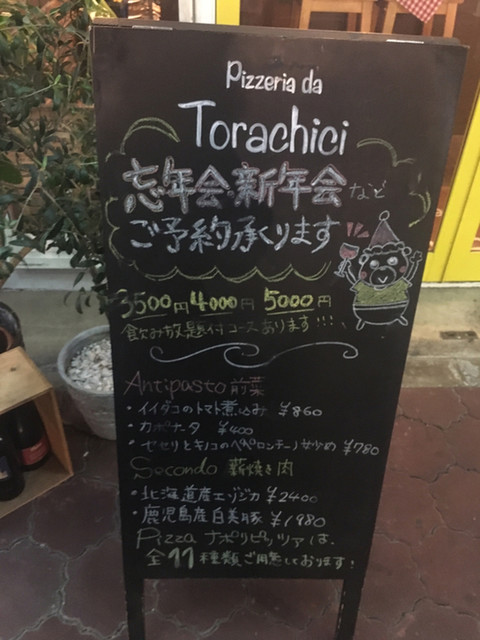 Pizzeria da
Torachici
忘年会・新年会など
ご予約承ります
3500円 4000円 5000円
飲み放題付コースあります!!!
Antipasto 前菜
・イイダコのトマト煮込み ¥860
・カポナータ ¥400
・セセリとキノコのペペロンチーノ炒め ¥780
Secondo 薪焼き肉
・北海道産エゾジカ ¥2400
・鹿児島産白美豚 ¥1980
Pizza ナポリピッツァは、
全11種類ご用意しております!